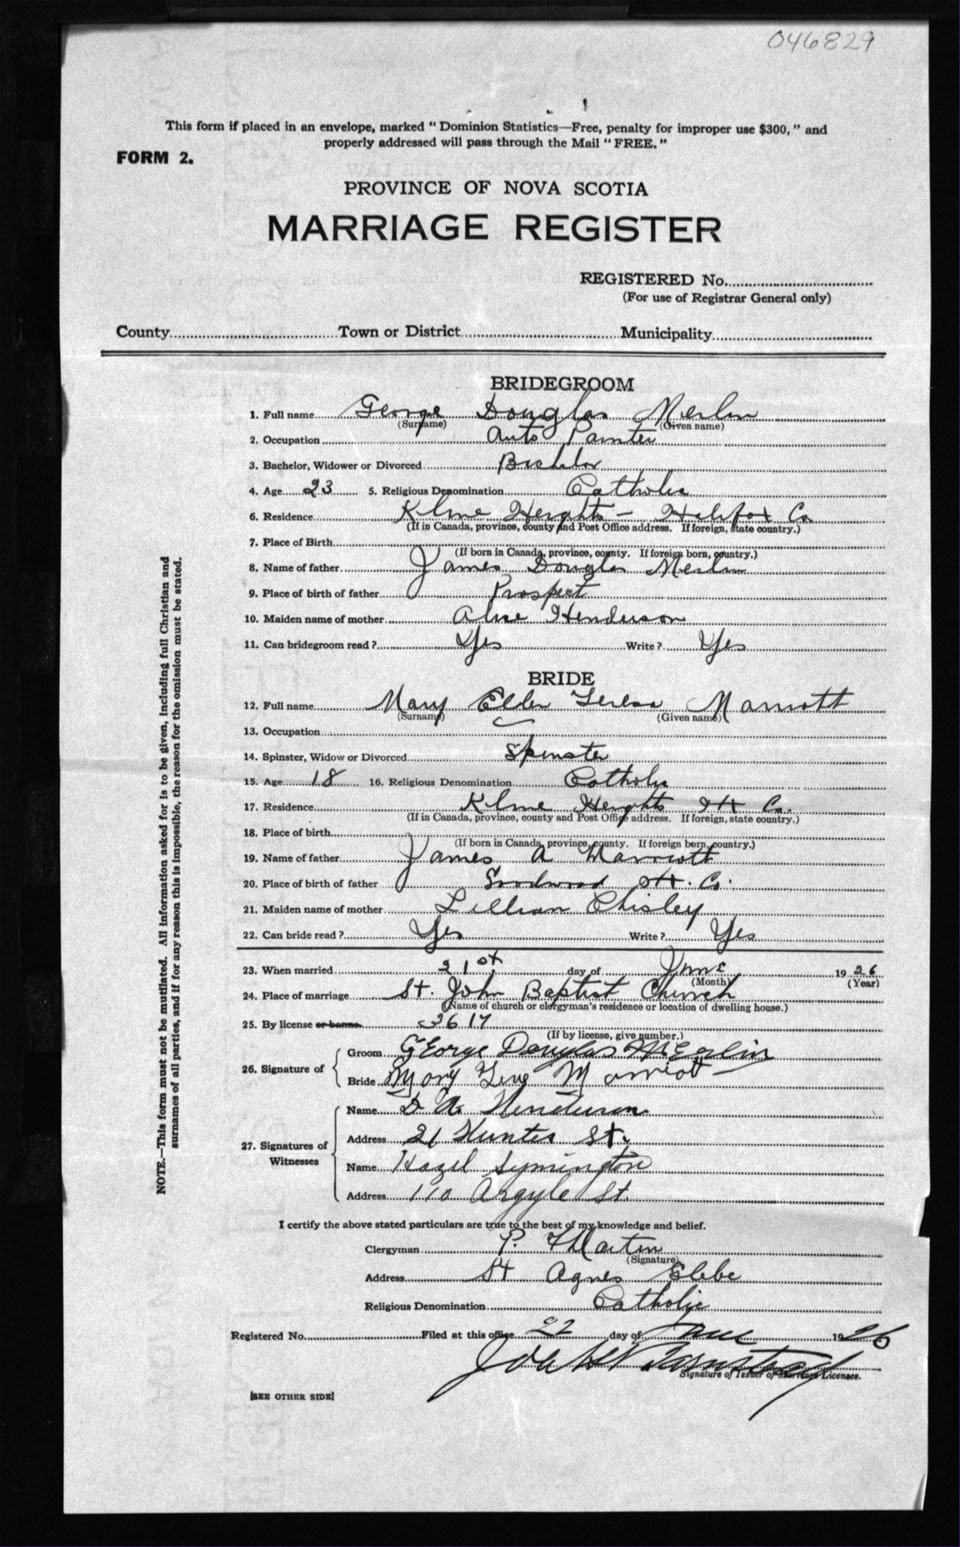 046829
This form if placed in an envelope, marked "Dominion Statistics—Free, penalty for improper use $300," and
properly addressed will pass through the Mail "FREE."
FORM 2.
PROVINCE OF NOVA SCOTIA
MARRIAGE REGISTER
REGISTERED No.
(For use of Registrar General only)
County Town or District Municipality
BRIDEGROOM
1. Full name George Douglas Merlin
(Surname) (Given name)
2. Occupation Auto Painter
3. Bachelor, Widower or Divorced Bachelor
4. Age 23 5. Religious Denomination Catholic
6. Residence Kline Heights - Halifax Co
(If in Canada, province, county and Post Office address. If foreign, state country.)
7. Place of Birth
(If born in Canada, province, county. If foreign born, country.)
8. Name of father James Douglas Merlin
9. Place of birth of father Prospect
10. Maiden name of mother Alice Henderson
11. Can bridegroom read? Yes Write? Yes
BRIDE
12. Full name Mary Ellen Teresa Marriott
(Surname) (Given name)
13. Occupation
14. Spinster, Widow or Divorced Spinster
15. Age 18 16. Religious Denomination Catholic
17. Residence Kline Heights Hx Co.
(If in Canada, province, county and Post Office address. If foreign, state country.)
18. Place of birth
(If born in Canada, province, county. If foreign born, country.)
19. Name of father James A Marriott
20. Place of birth of father Goodwood Hx. Co.
21. Maiden name of mother Lillian Chisley
22. Can bride read? Yes Write? Yes
23. When married 21st day of June 1926
(Month) (Year)
24. Place of marriage St. John Baptist Church
(Name of church or clergyman's residence or location of dwelling house.)
25. By license or banns
(If by license, give number.)
26. Signature of Groom George Douglas Merlin
Bride Mary Marriott
27. Signatures of Witnesses
Name Henderson
Address 21 Hunter St.
Name Hazel Symington
Address 110 Argyle St.
I certify the above stated particulars are true to the best of my knowledge and belief.
Clergyman P. Martin
(Signature)
Address St Agnes Glebe
Religious Denomination Catholic
Registered No. Filed at this office 22 day of June 1926
Signature of Issuer of Marriage Licenses.
[SEE OTHER SIDE]
NOTE.—This form must not be mutilated. All information asked for is to be given, including full Christian and
surnames of all parties, and if for any reason this is impossible, the reason for the omission must be stated.